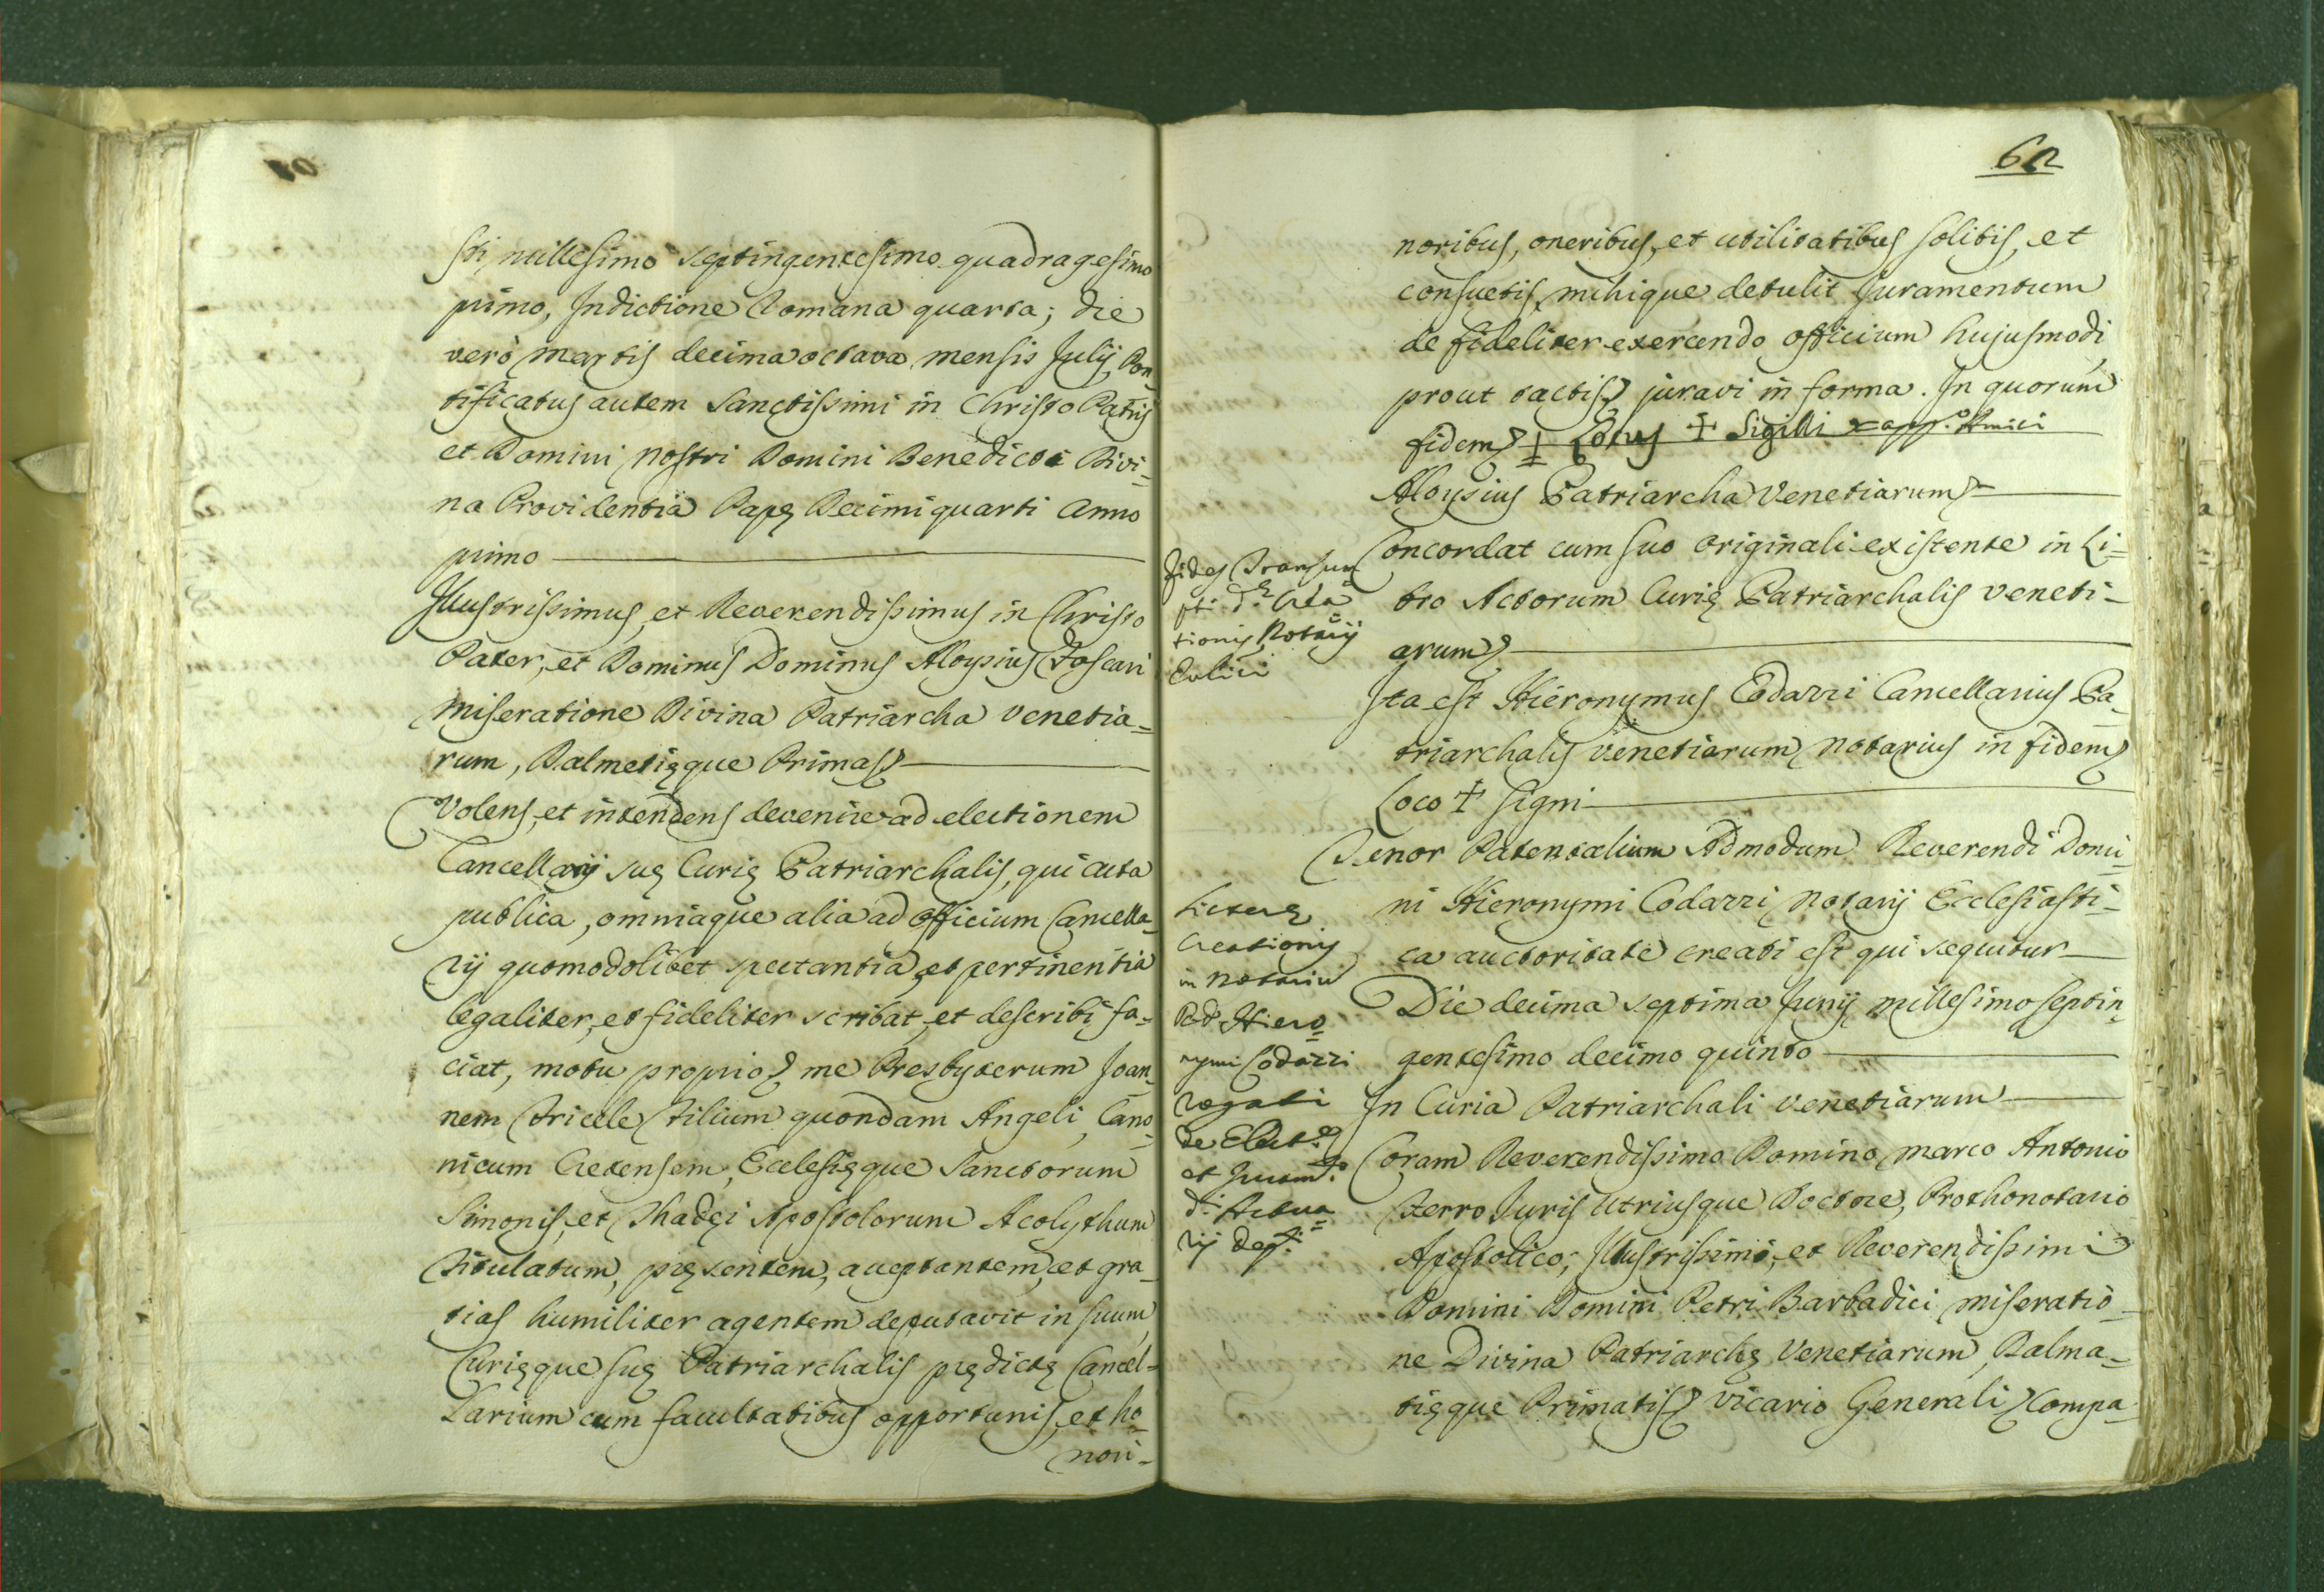 sti, millesimo septingentesimo quadragesimo
primo, Indictione Romana quarta; die
verò Martis decima octava mensis Julij Pon
tificatus autem Sanctissimi in Christo Patris
et Domini Nostri Domini Benedicti Divi=
na Providentia Papę Decimi quarti anno
primo
Illustrissimus, et Reverendissimus in Christo
Pater, et Dominus Dominus Aloysius Foscari
miseratione Divina Patriarcha Venetia=
rum, Dalmetięque Primas
Volens, et intendens devenire ad electionem
Cancellarij suę Curię Patriarchalis, qui acta
publica, omniaque alia ad officium Cancella=
rij quomodolibet spectantia, et pertinentia
legaliter, et fideliter scribat, et describi fa=
ciat, motu proprio me Presbyterum Joan=
nem Tricele Filium quondam Angeli, Cano=
nicum Cretensem, Ecclesięque Sanctorum
Simonis, et Thadęi Apostolorum Acolythum
Titulatum, pręsentem, acceptantem, et gra=
tias humiliter agentem deputavit in suum,
Curięque suę Patriarchalis prędictę Cancel=
larium cum facultatibus opportunis, et ho=
nori=
62
noribus, oneribus, et utilitatibus solitis, et
consuetis, mihique detulit Juramentum
de fideliter exercendo officium hujusmodi,
prout tactis juravi in forma. In quorum
fidem Locus + Sigilli
Aloysius Patriarcha Venetiarum
Fides Transum
pti d.ę Crea
tionis Notarij
Concordat cum suo originali existente in Li=
bro Actorum Curię Patriarchalis Veneti=
arum
Ita est Hieronymus Codazzi Cancellarius Pa=
triarchalis Venetiarum Notarius in fidem
Loco + Signi
Tenor Patentalium Admodum Reverendi Domi=
ni Hieronymi Codazzi Notarij Ecclesiasti=
ca auctoritate creati est qui sequitur
Literę
Creationis
in Notariu
R.D. Hiero=
nymi Codazzi
rogati
de Elect.e
et Juram.to
d.i Actua=
rij
Die decima septima Junij millesimo septin=
gentesimo decimo quinto
In Curia Patriarchali Venetiarum
Coram Reverendissimo Domino Marco Antonio
Ferro Juris Utriusque Doctore, Prothonotario
Apostolico, Illustrissimi, et Reverendissimi
Domini Domini Petri Barbadici miseratio=
ne Divina Patriarchę Venetiarum, Dalma=
tięque Primatis Vicario Generali Compa=